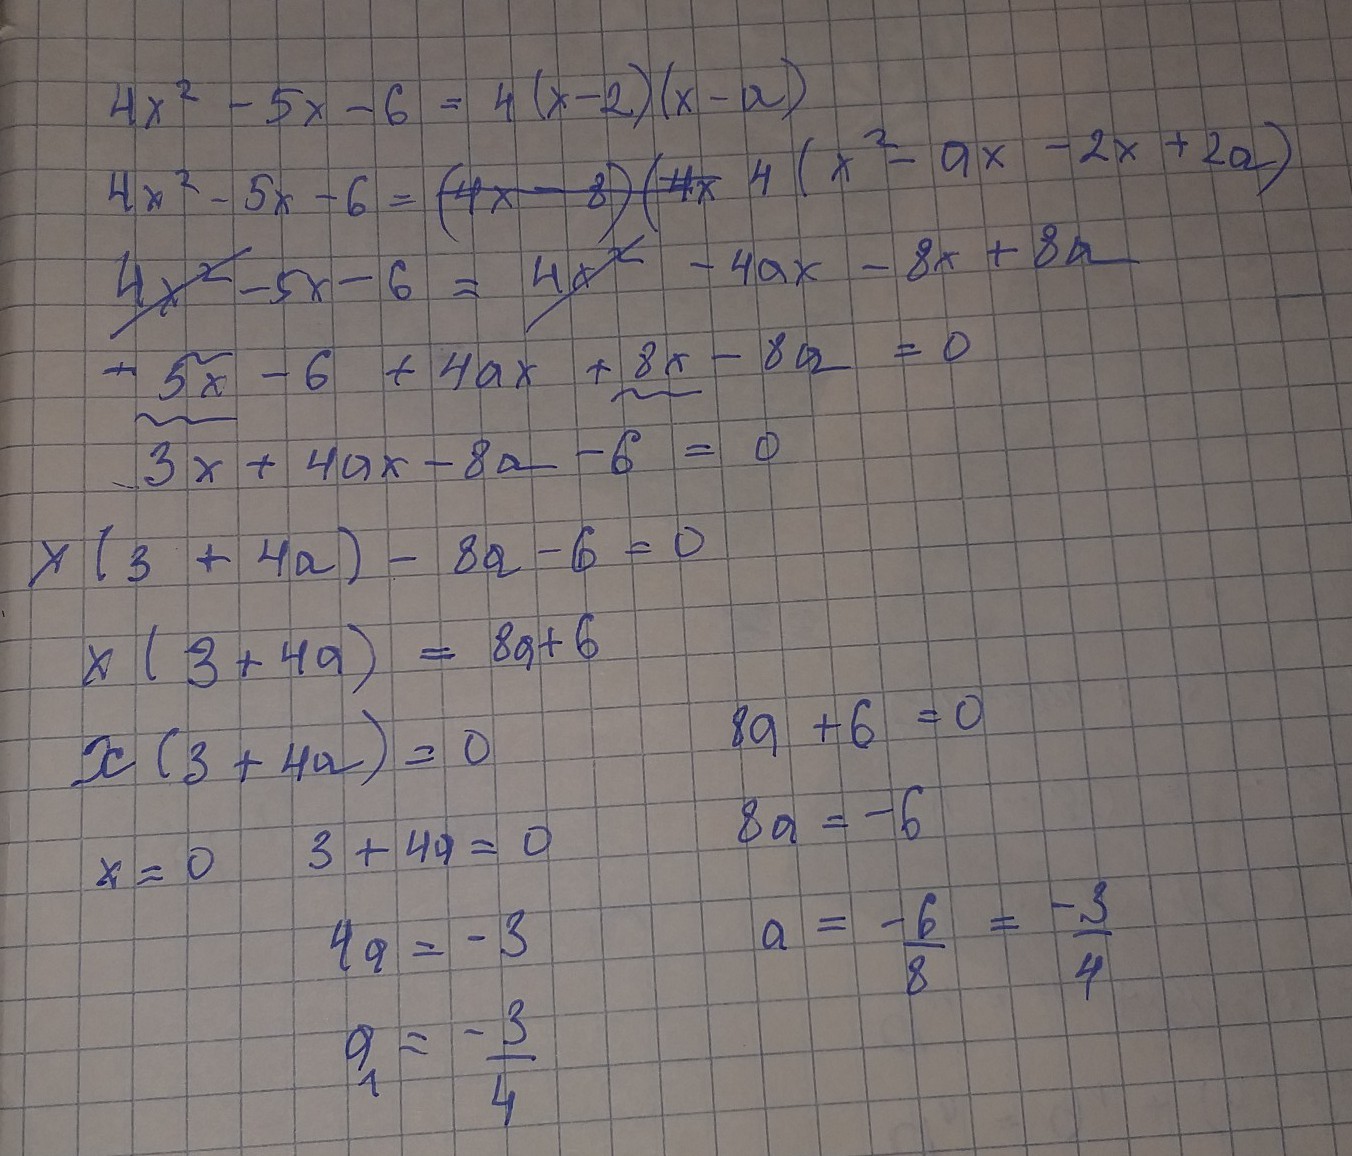 4x² - 5x - 6 = 4(x-2)(x-a)
4x² - 5x - 6 = (4x - 8)(4x 4(x² - ax - 2x + 2a)
4x² - 5x - 6 = 4x² - 4ax - 8x + 8a
- 5x - 6 + 4ax + 8x - 8a = 0
3x + 4ax - 8a - 6 = 0
x(3 + 4a) - 8a - 6 = 0
x(3 + 4a) = 8a + 6
x(3 + 4a) = 0 8a + 6 = 0
x = 0 3 + 4a = 0 8a = -6
4a = -3 a = -6/8 = -3/4
a₁ = -3/4